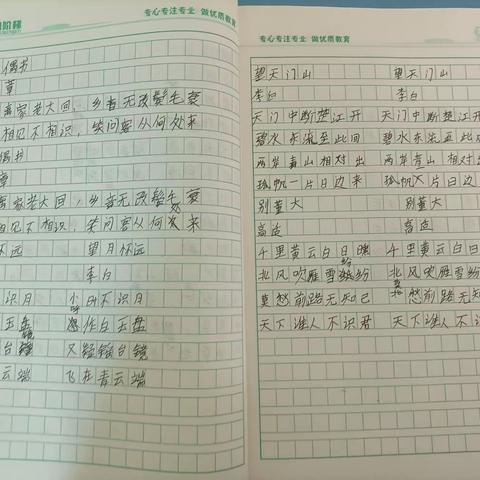 阶梯 专心专注专业 做优质教育
偶书
章
离家老大回，乡音无改鬓毛衰
相见不相识，笑问客从何处来
偶书
章
离家老大回，乡音无改鬓毛衰
相见不相识，笑问客从何处来
怀远 望月怀远
李白
识月 小时不识月
玉盘 作白玉盘
台镜 又疑镜台镜
云端 飞在青云端
专心专注专业 做优质教育
望天门山 望天门山
李白 李白
天门中断楚江开 天门中断楚江
碧水东流至此回 碧水东流至此
两岸青山相对出 两岸青山相对
孤帆一片日边来 孤帆一片日边
别董大 别董大
高适 高适
千里黄云白日曛 千里黄云白日
北风吹雁雪纷纷 北风吹雁雪纷
莫愁前路无知己 莫愁前路无知
天下谁人不识君 天下谁人不识